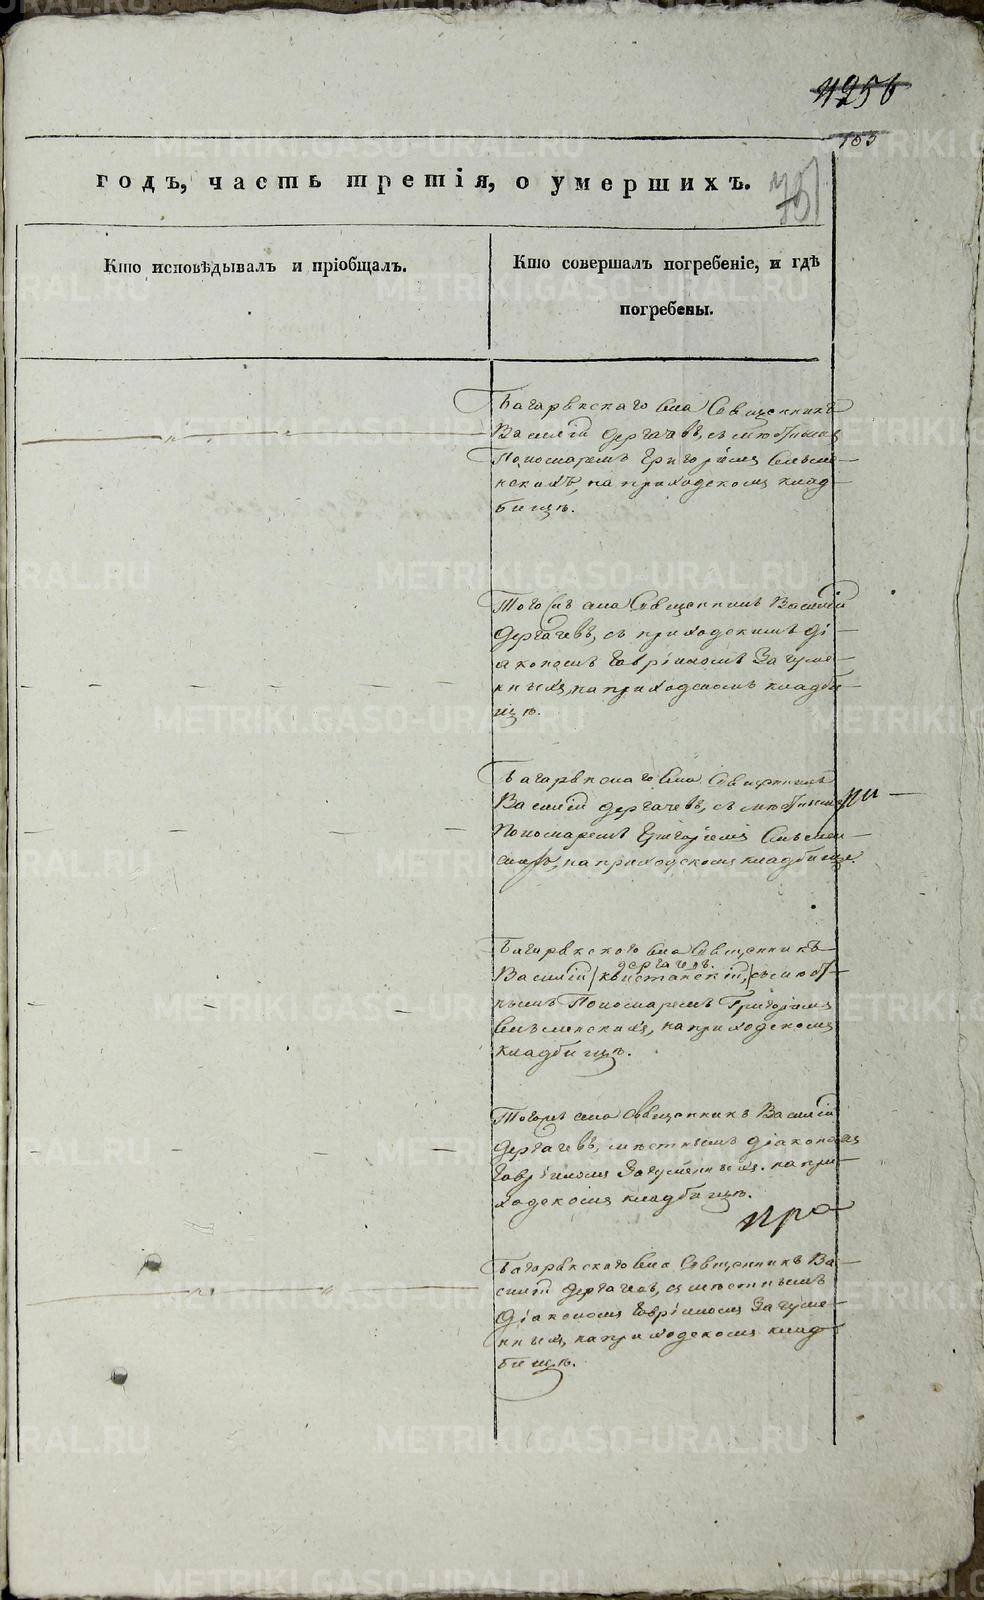 4256
годъ, часть третія, о умершихъ.
Кто исповѣдывалъ и пріобщалъ.
Кто совершалъ погребеніе, и гдѣ
погребены.
Багарякскаго села Священникъ
Василій Дергачевъ, съ мѣстнымъ
Пономаремъ Григоріемъ
на приходскомъ клад-
бищѣ.
Тогожъ села Священникъ Василій
Дергачевъ, съ приходскимъ ді-
акономъ Гавріиломъ Загуме-
нныхъ, на приходскомъ кладби-
щѣ.
Багарякскаго села Священникъ
Василій Дергачевъ, съ мѣстнымъ
Пономаремъ Григоріемъ
на приходскомъ кладбище.
Багарякского села Священникъ
дергачевъ.
Василій
Пономаремъ Григоріемъ
на приходскомъ
кладбищѣ.
Тогоже села Священникъ Василій
Дергачевъ, мѣстнымъ діакономъ
Гавріиломъ Загуменныхъ. на при-
ходскомъ кладбищѣ.
Багарякскаго села Священникъ Ва-
силій Дергачевъ, съ мѣстнымъ
Діакономъ Гавріиломъ Загуме-
нныхъ, на приходскомъ клад-
бищѣ.
METRIKI.GASO-URAL.RU